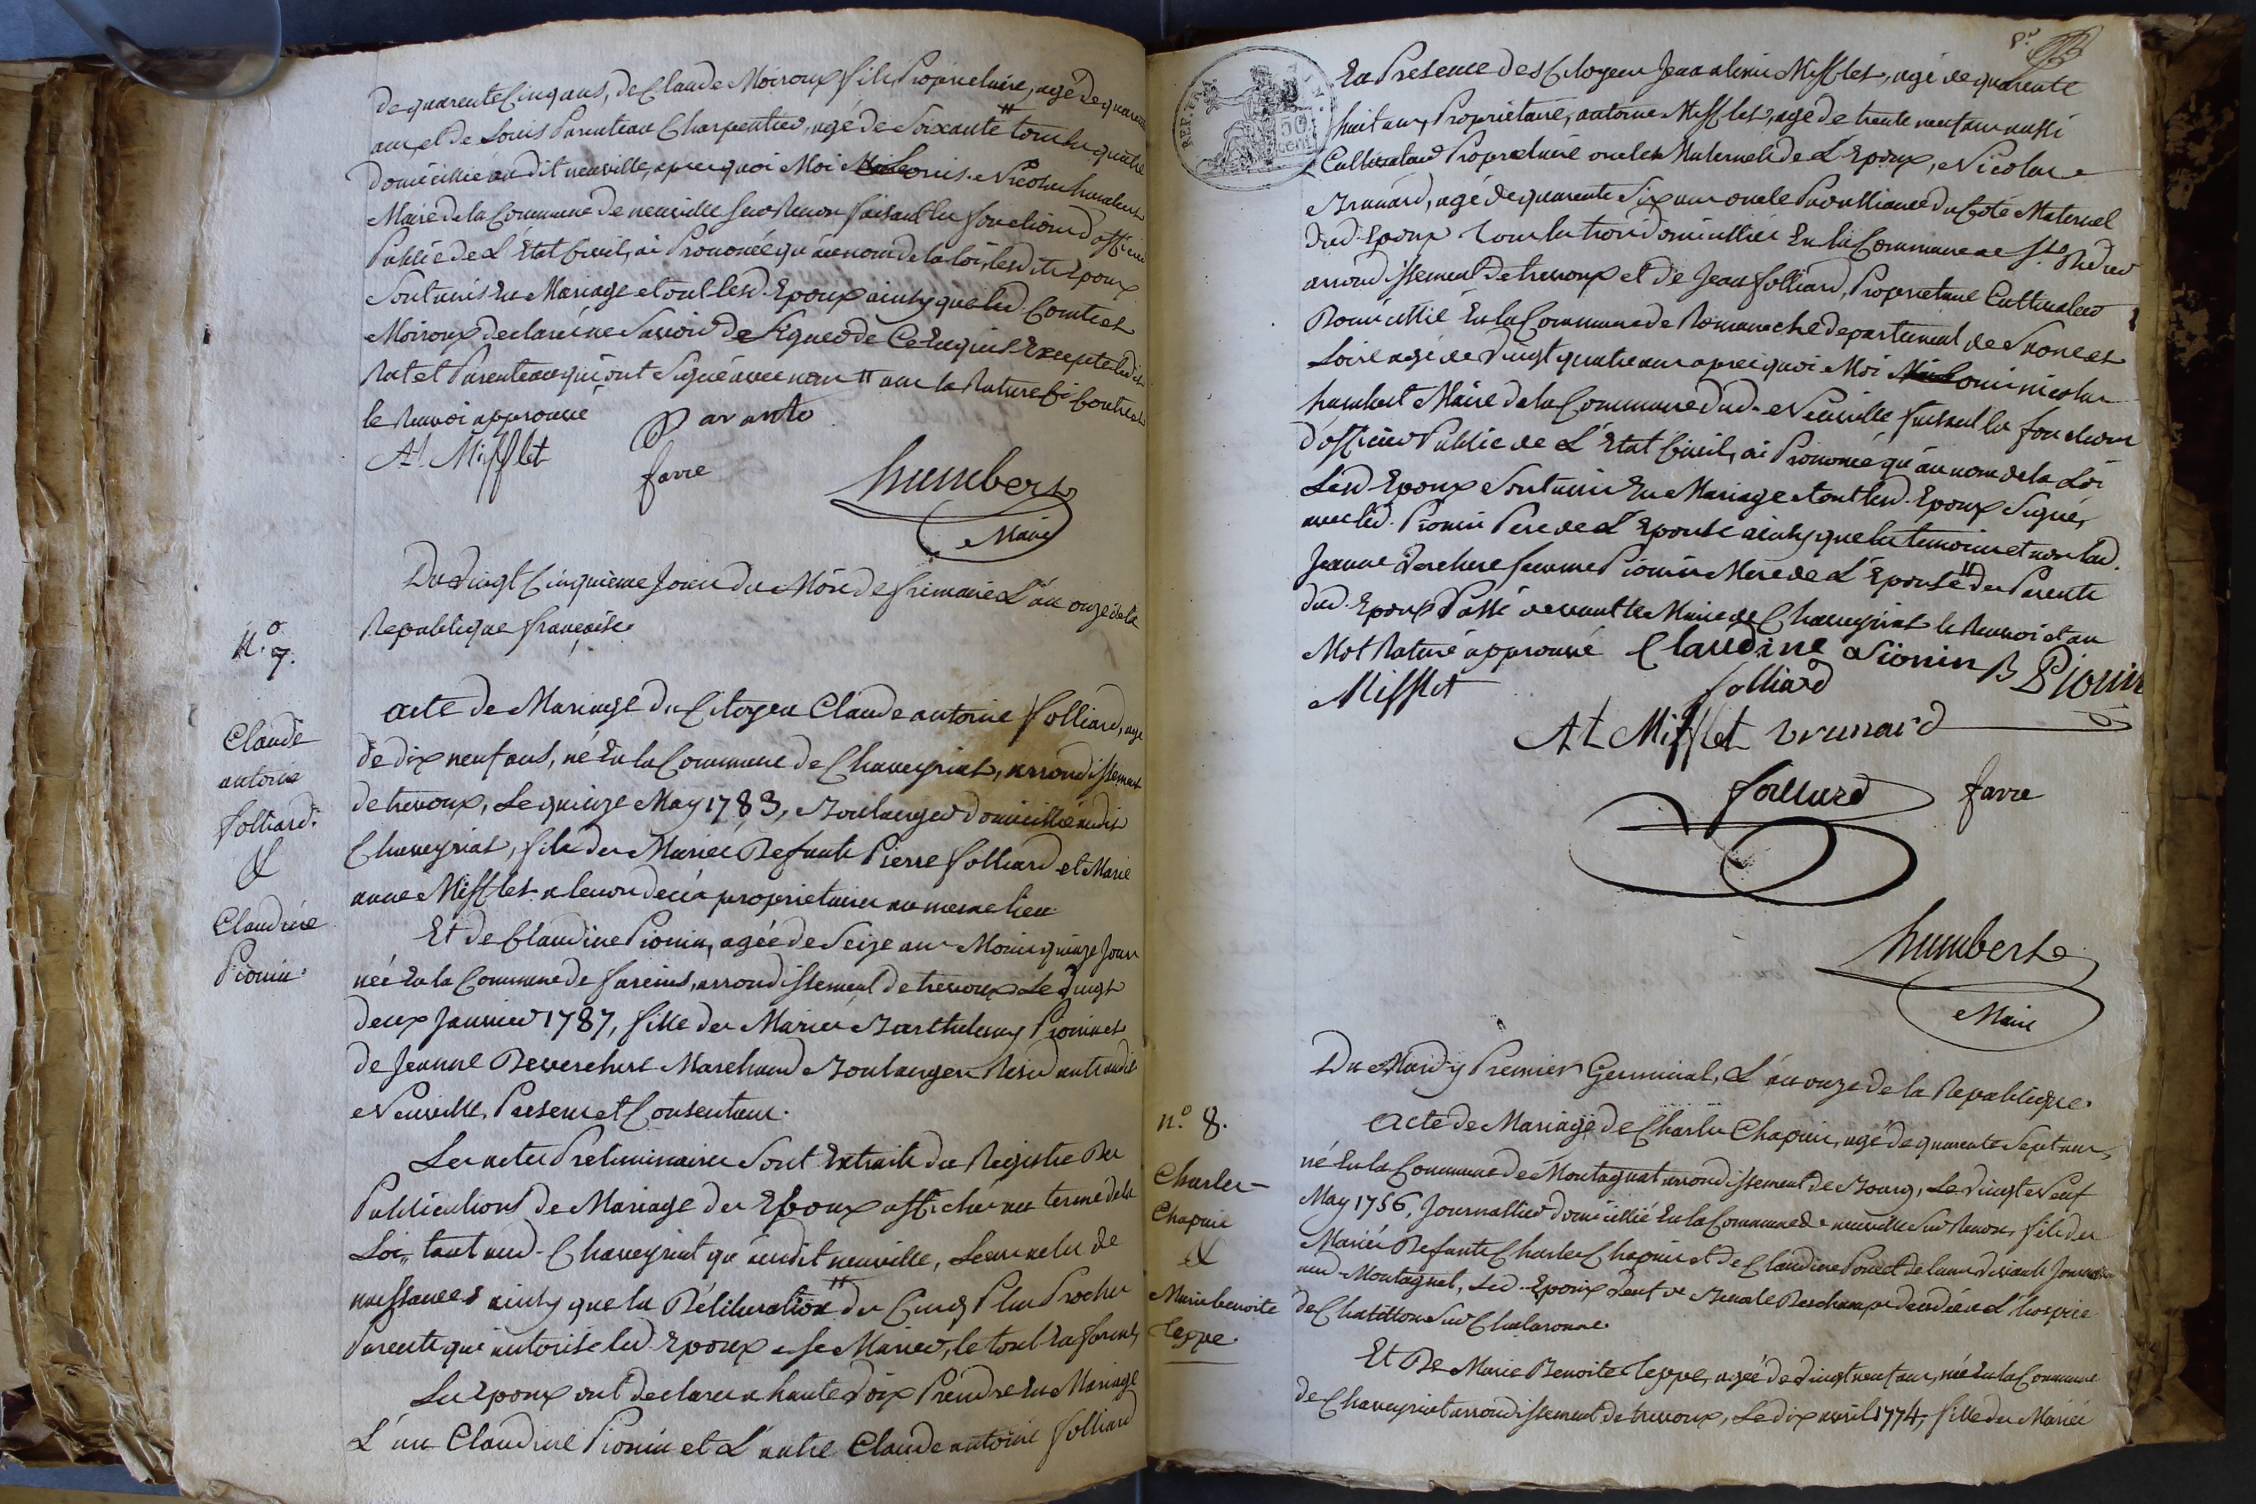 de quarente Cinq ans, de Claude Moiroux fils Proprietaire, agé de quarente
ans, et de Louis Parenteau Charpentier, agé de Soixante # tous les quatre
domicillié au dit neuville, apres quoi Moi Louis Nicolas humbert
Maire de la Commune de neuville sur Renon faisant les fonctions d'officier
Public de L'Etat Civil, ai Prononcé qu'au nom de la loi, lesdits Epoux
Sont unis en Mariage et ont lesd. Epoux ainsy que led. Comtet
Moiroux declaré ne Savoir de Signer de Ce Enquis Excepte lesdits
Rat et Parenteau qui ont Signé avec nous # ans la Rature Ci Contre et
le Renvoi approuvé
At. Mifflet Paranto
farre
humbert
Maire
Du Vingt Cinquieme Jour du Mois de frimaire L'an onze de la
Republique française.
N.o 7.
Claude
antoine
folliard.
&
Claudine
Pionin.
acte de Mariage du Citoyen Claude antoine folliard, agé
de dix neuf ans, né En la Commune de Chaveyriat, arrondissement
de trevoux, Le quinze May 1783, Boulanger domicillié audit
Chaveyriat, fils des Mariés Defunts Pierre folliard et Marie
anne Mifflet a leur deces proprietaires au meme lieu.
Et de Claudine Pionin, agée de Seize ans Moins quinze Jours
née En la Commune de fareins, arrondissement de trevoux Le Vingt
deux Janvier 1787, fille des Mariés Barthelemy Pionin et
de Jeanne Deverchere Marchand Boulanger Residants audit
Neuville, Presens et Consentans.
Les actes Preliminaires Sont Extraits des Registre Des
Publications de Mariage des Epoux affichés au terme de la
Loi, tant aud. Chaveyriat qu'audit neuville, Leurs actes de
naissances ainsy que la Déliberation # des Cinq Plus Proches
Parents qui autorise led. Epoux a Se Marier, le tout En forme,
Les Epoux ont declarés a haute Voix Prendre En Mariage
L'un Claudine Pionin et L'autre Claude antoine folliard
En Presence des Citoyens Jean Mifflet, agé de quarente
huit ans, Propriétaire, antoine Mifflet, agé de trente neuf ans aussi
Cultivateur Propriétaire oncles Maternels de L'Epoux, Nicolas
Brunard, agé de quarente Six ans oncle Par alliance du Coté Maternel
dud. Epoux tous les trois domicilliés En la Commune de St. Didier
arrondissement de trevoux et de Jean folliard, Proprietaire Cultivateur
Domicillié En la Commune de Romaneche departement de Saone et
Loire agé de Vingt quatre ans apres quoi Moi Louis nicolas
humbert Maire de la Commune dud. Neuville faisant les fonctions
d'officier Public de L'Etat Civil, ai Prononcé qu'au nom de la Loi
Lesd. Epoux Sont unis En Mariage et ont lesd. Epoux Signé,
avec led. Pionin Pere de L'Epouse ainsy que les temoins et non lad.
Jeanne Verchere femme Pionin Mere de L'Epouse # des Parents
dud. Epoux Passé devant le Maire de Chaveyriat le Renvoi et un
Mot Raturé approuvé Claudine Pionin B Pionin
Mifflet folliard
At Mifflet Brunard
folliard farre
humbert
Maire
Du Mardy Premier Germinal, L'an onze de la Republique.
n.o 8.
Charles
Chapuis
&
Marie benoite
Teppe.
Acte de Mariage de Charles Chapuis, agé de quarente Sept ans,
né En la Commune de Montagnat arrondissement de Bourg, Le Vingt Neuf
May 1756, Journallier domicillié En la Commune de neuville Sur Renon, fils des
Mariés Defunts Charles Chapuis et de Claudine Poncet de leur vivant Journaliers
aud. Montagnat, Led. Epoux Veuf de Deschamps decedée a L'hospice
de Chatillon Sur Chalaronne.
Et De Marie Benoite Teppe, agée de Vingt neuf ans, née En la Commune
de Chaveyriat arrondissement de trevoux, Le dix avril 1774, fille des Mariés